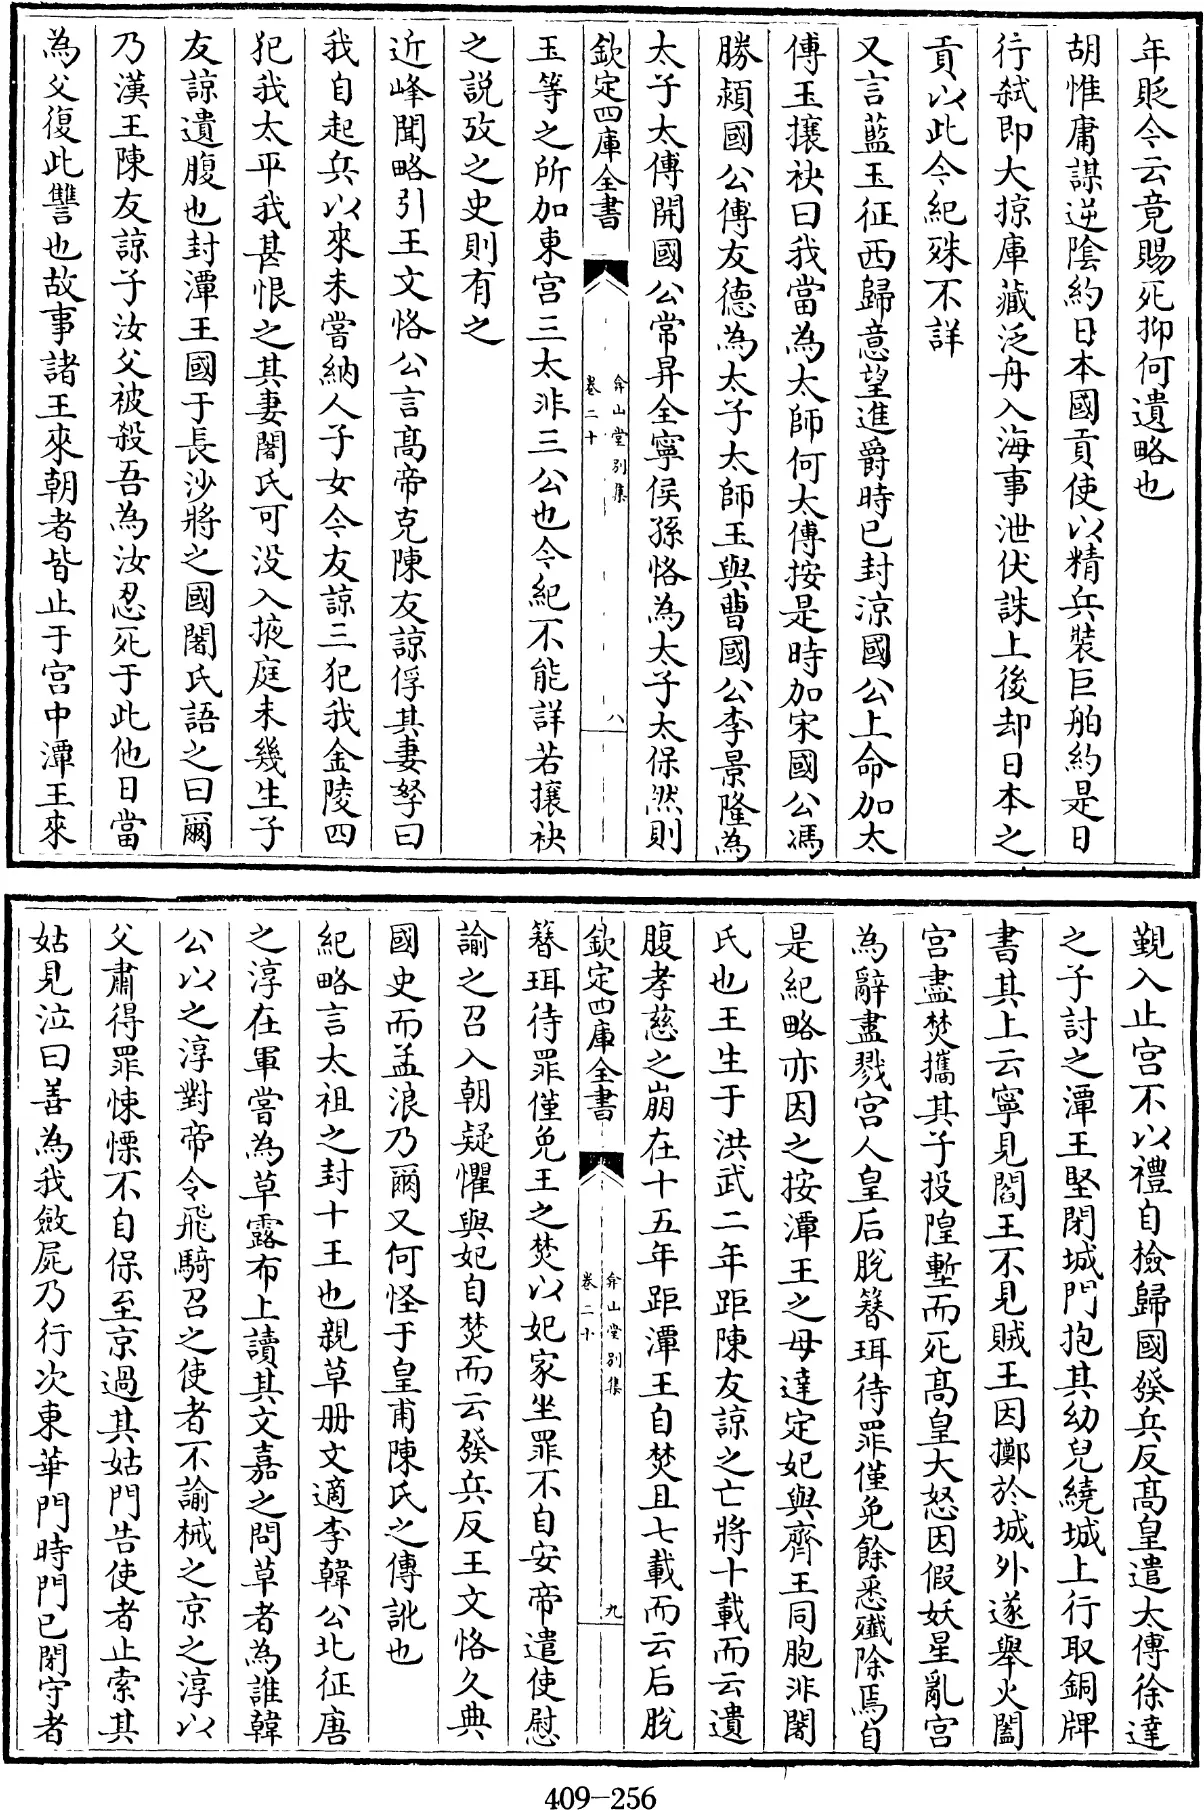 年貶今云竟賜死抑何遺略也
胡惟庸謀逆陰約日本國貢使以精兵裝巨舶約是日
行弑即大掠庫藏泛舟入海事泄伏誅上後却日本之
貢以此今紀殊不詳
又言藍玉征西歸意望進爵時已封涼國公上命加太
傅玉攘袂曰我當為太師何太傅按是時加宋國公馮
勝潁國公傅友德為太子太師玉與曹國公李景隆為
太子太傅開國公常昇全寧侯孫恪為太子太保然則
欽定四庫全書
弇山堂别集
卷二十
八
玉等之所加東宫三太非三公也今紀不能詳若攘袂
之説攷之史則有之
近峰聞略引王文恪公言髙帝克陳友諒俘其妻孥曰
我自起兵以來未嘗納人子女今友諒三犯我金陵四
犯我太平我甚恨之其妻闍氏可没入掖庭未幾生子
友諒遺腹也封潭王國于長沙將之國闍氏語之曰爾
乃漢王陳友諒子汝父被殺吾為汝忍死于此他日當
為父復此讐也故事諸王來朝者皆止于宫中潭王來
覲入止宫不以禮自檢歸國發兵反髙皇遣太傅徐達
之子討之潭王堅閉城門抱其幼兒繞城上行取銅牌
書其上云寧見閻王不見賊王因擲於城外遂舉火闔
宫盡焚攜其子投隍塹而死髙皇大怒因假妖星亂宫
為辭盡戮宫人皇后脫簪珥待罪僅免餘悉殱除焉自
是紀略亦因之按潭王之母達定妃與齊王同胞非闍
氏也王生于洪武二年距陳友諒之亡將十載而云遺
腹孝慈之崩在十五年距潭王自焚且七載而云后脫
欽定四庫全書
弇山堂别集
卷二十
九
簪珥待罪僅免王之焚以妃家坐罪不自安帝遣使慰
諭之召入朝疑懼與妃自焚而云發兵反王文恪久典
國史而孟浪乃爾又何怪于皇甫陳氏之傳訛也
紀略言太祖之封十王也親草册文適李韓公北征唐
之淳在軍嘗為草露布上讀其文嘉之問草者為誰韓
公以之淳對帝令飛騎召之使者不諭械之京之淳以
父肅得罪悚慄不自保至京過其姑門告使者止索其
姑見泣曰善為我斂屍乃行次東華門時門已閉守者
409-256